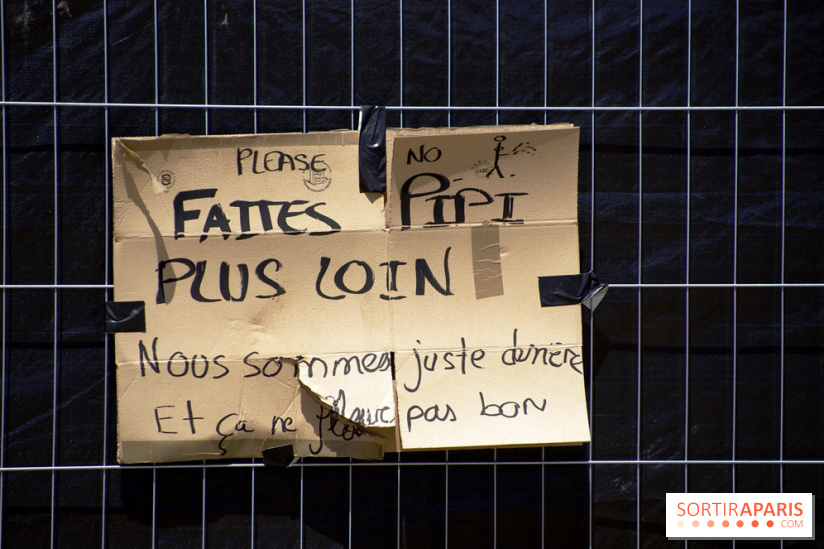 PLEASE NO
FAITES PIPI
PLUS LOIN
Nous sommes juste derrière
Et ça ne pas bon
SORTIRAPARIS
.COM